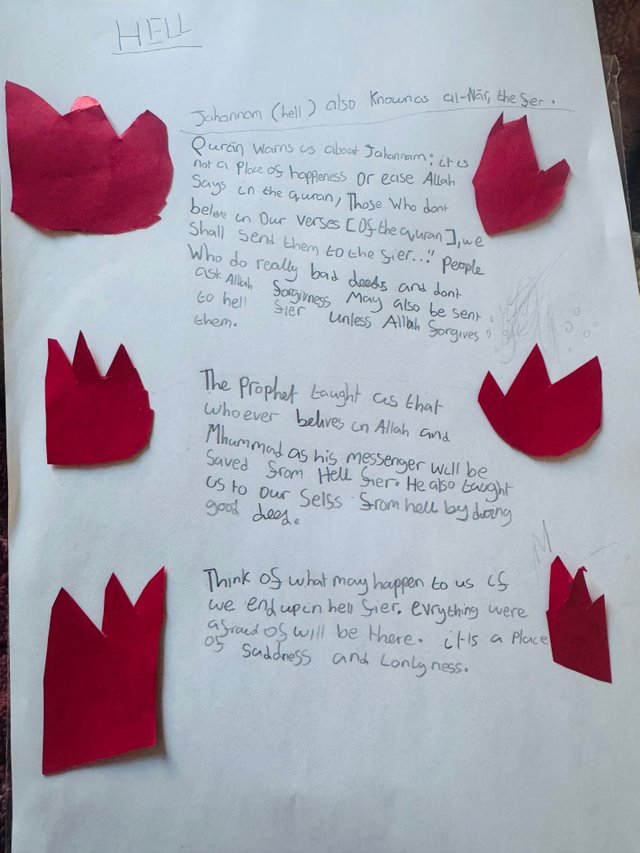 HELL
Jahannam (hell) also Known as al-Nār, the fier.
Qurān warns us about Jahannam: it is
not a Place of happieness or ease Allah
Says in the quran, Those Who dont
believe in Our verses [of the quran], we
Shall send them to the fier..." People
Who do really bad deeds and dont
ask Allah forgivness May also be sent
to hell fier unless Allah forgives
them.
The Prophet taught us that
whoever belives in Allah and
Mhummad as his messenger will be
Saved from Hell fier. He also taught
us to our selfs from hell by doing
good deed.
Think of what may happen to us if
we end up in hell fier. evrything were
afraid of will be there. it is a Place
of Saddness and Lonlyness.